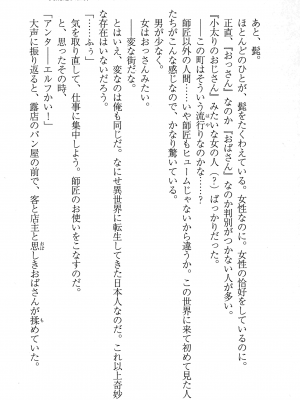 あと、髭。
ほとんどのひとが、髭をたくわえている。女性なのに。女性の恰好をしているのに。
正直、『おっさん』なのか『おばさん』なのか判別がつかない人が多い。
『小太りのおじさん』みたいな女の人(?)ばっかりだった。
――この町はそういう流行りなのかな……?
師匠以外の人間……いや師匠もヒュームじゃないから違うか。この世界に来て初めて見た人
たちがこんな感じなので、かなり驚いている。
男が少なく。
女はおっさんみたい。
――変な街だな。
とはいえ、変なのは俺も同じだ。なにせ異世界に転生してきた日本人なのだ。これ以上奇妙
な存在はいないだろう。
「……ふぅ」
気を取り直して、仕事に集中しよう。師匠のお使いをこなすのだ。
と、思ったその時、
「アンター――エルフかい!」
大声に振り返ると、露店のパン屋の前で、客と店主と思しきおばさんが揉めていた。